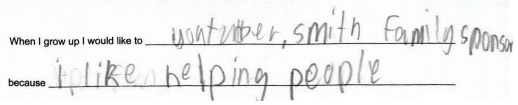 When I grow up I would like to youtubber, smith family sponsor
because i like helping people